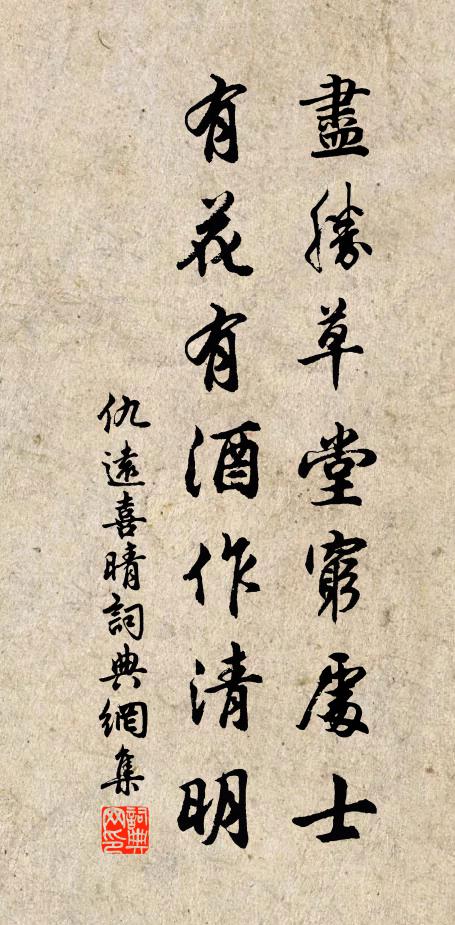 盡勝草堂窮處士
有花有酒作清明
仇遠喜晴詞典網集
詞典網印